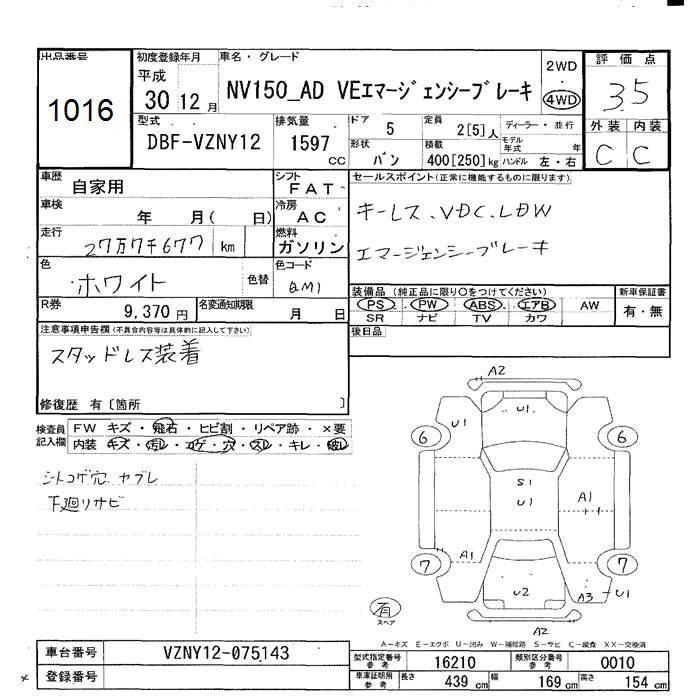 出品番号 初度登録年月 車名・グレード 2WD 評価点
1016 平成 30 12月 NV150_AD VEエマージェンシーブレーキ ・ 4WD 3.5
型式 排気量 ドア 5 定員 2[5]人 ディーラー・並行 外装 内装
DBF-VZNY12 1597 cc 形状 バン 積載 400[250]kg モデル年式 年 ハンドル 左・右 C C
車歴 自家用 シフト FAT セールスポイント(正常に機能するものに限ります)
車検 年 月( 日) 冷房 AC キーレス、VDC、LDW
走行 27万7千677 km 燃料 ガソリン エマージェンシーブレーキ
色 ホワイト 色替 色コード QM1
装備品(純正品に限り○をつけてください) 新車保証書
PS PW ABS エアB AW 有・無
R券 9,370円 名変通知期限 月 日 SR ナビ TV カワ
注意事項申告欄(不具合内容等は具体的に記入して下さい) 後日品
スタッドレス装着
修復歴 有〔箇所 〕
検査員記入欄 FW キズ・飛石・ヒビ割・リペア跡・×要
内装 キズ・汚レ・コゲ・穴・スレ・キレ・破レ
シトコゲ穴、ヤブレ
下廻りサビ
A2
U1 U1
6 6
S1
U1 A1
A1
7 7
U2 A3 U1
有
スペア A2
A-キズ E-エクボ U-凹み W-補修跡 S-サビ C-腐食 XX-交換済
車台番号 VZNY12-075143 型式指定番号 参考 16210 類別区分番号 参考 0010
× 登録番号 車庫証明用 参考 長さ 439 cm 幅 169 cm 高さ 154 cm